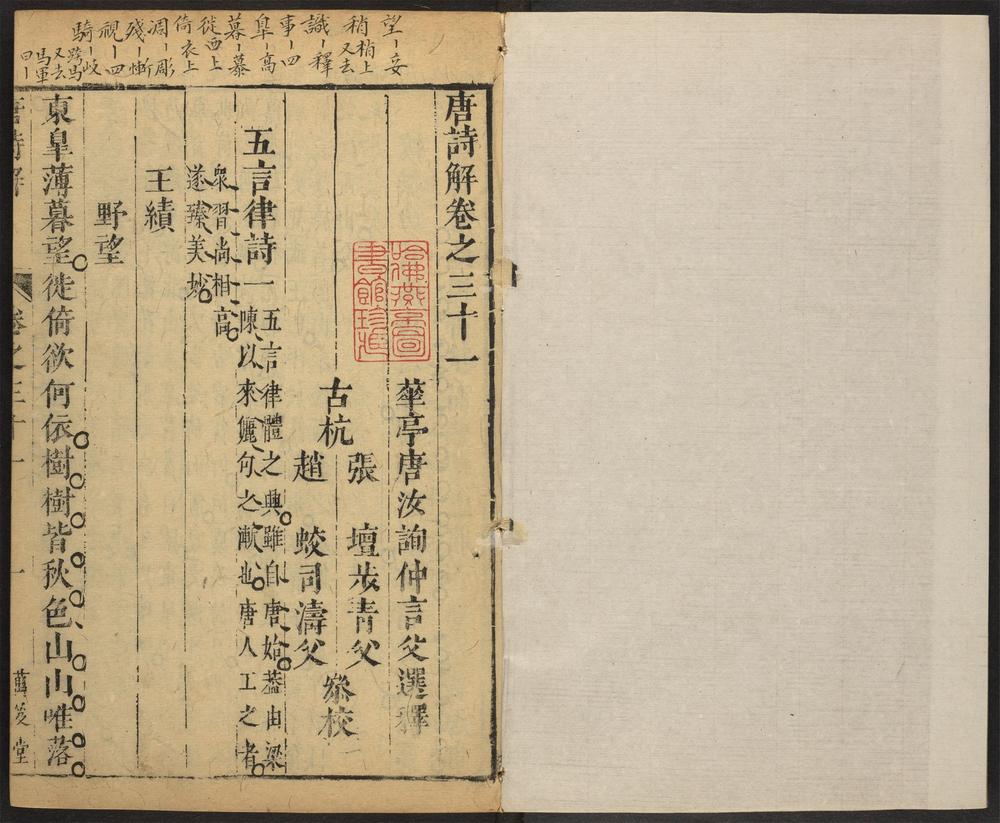 唐詩解卷之三十一
華亭唐汝詢仲言父選釋
張　壇步青父
古杭
趙　蛟司濤父
叅校
五言律詩一
五言律體之興雖自唐始葢由梁
陳以來儷句之漸也唐人工之者
衆習尚相高
遂臻美妙
王績
野望
東臯薄暮望徙倚欲何依樹樹皆秋色山山唯落
唐詩解
卷之三十一
一
哈佛燕京圖
書館珍藏
望－妄
稍－梢上
又去
識－釋
事－四
臯－高
暮－慕
徙西上
倚衣上
凋－彫
殘－慚
視－四
騎－岐
跨馬
又去
馬軍
曰－